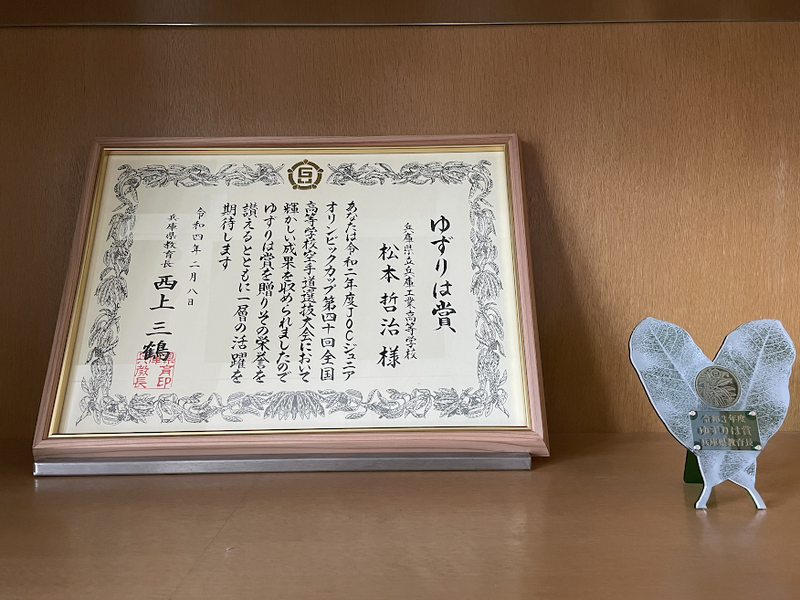 ゆずりは賞
兵庫県立兵庫工業高等学校
松本哲治様
あなたは令和二年度JOCジュニア
オリンピックカップ第四十回全国
高等学校空手道選抜大会において
輝かしい成果を収められましたので
ゆずりは賞を贈りその栄誉を
讃えるとともに一層の活躍を
期待します
令和四年二月八日
兵庫県教育長 西上三鶴
令和3年度
ゆずりは賞
兵庫県教育長